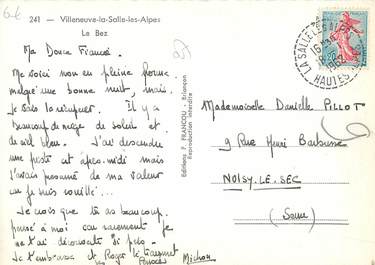 241 - Villeneuve-la-Salle-les-Alpes
Le Bez
Ma Douce France.
Me voici non en pleine forme
malgré une bonne nuit, mais
je vais la récupérer. Il y a
beaucoup de neige de soleil et
de ciel bleu. J'ai descendu
une piste cet apes-midi mais
j'avais présumé de ma valeur
car je suis
Je crois que tu as beaucoup
pensé à moi car rarement je
ne t'ai découverte si
Je t'embrasse et Roger
Michou
Editions F. FRANCOU, Briançon
Reproduction interdite
LA SALLE LES ALPES
16
8-2
1962
HAUTES
Mademoiselle Danielle PILLOT
9 Rue Henri Barbusse
NOISY-LE-SEC
(Seine)